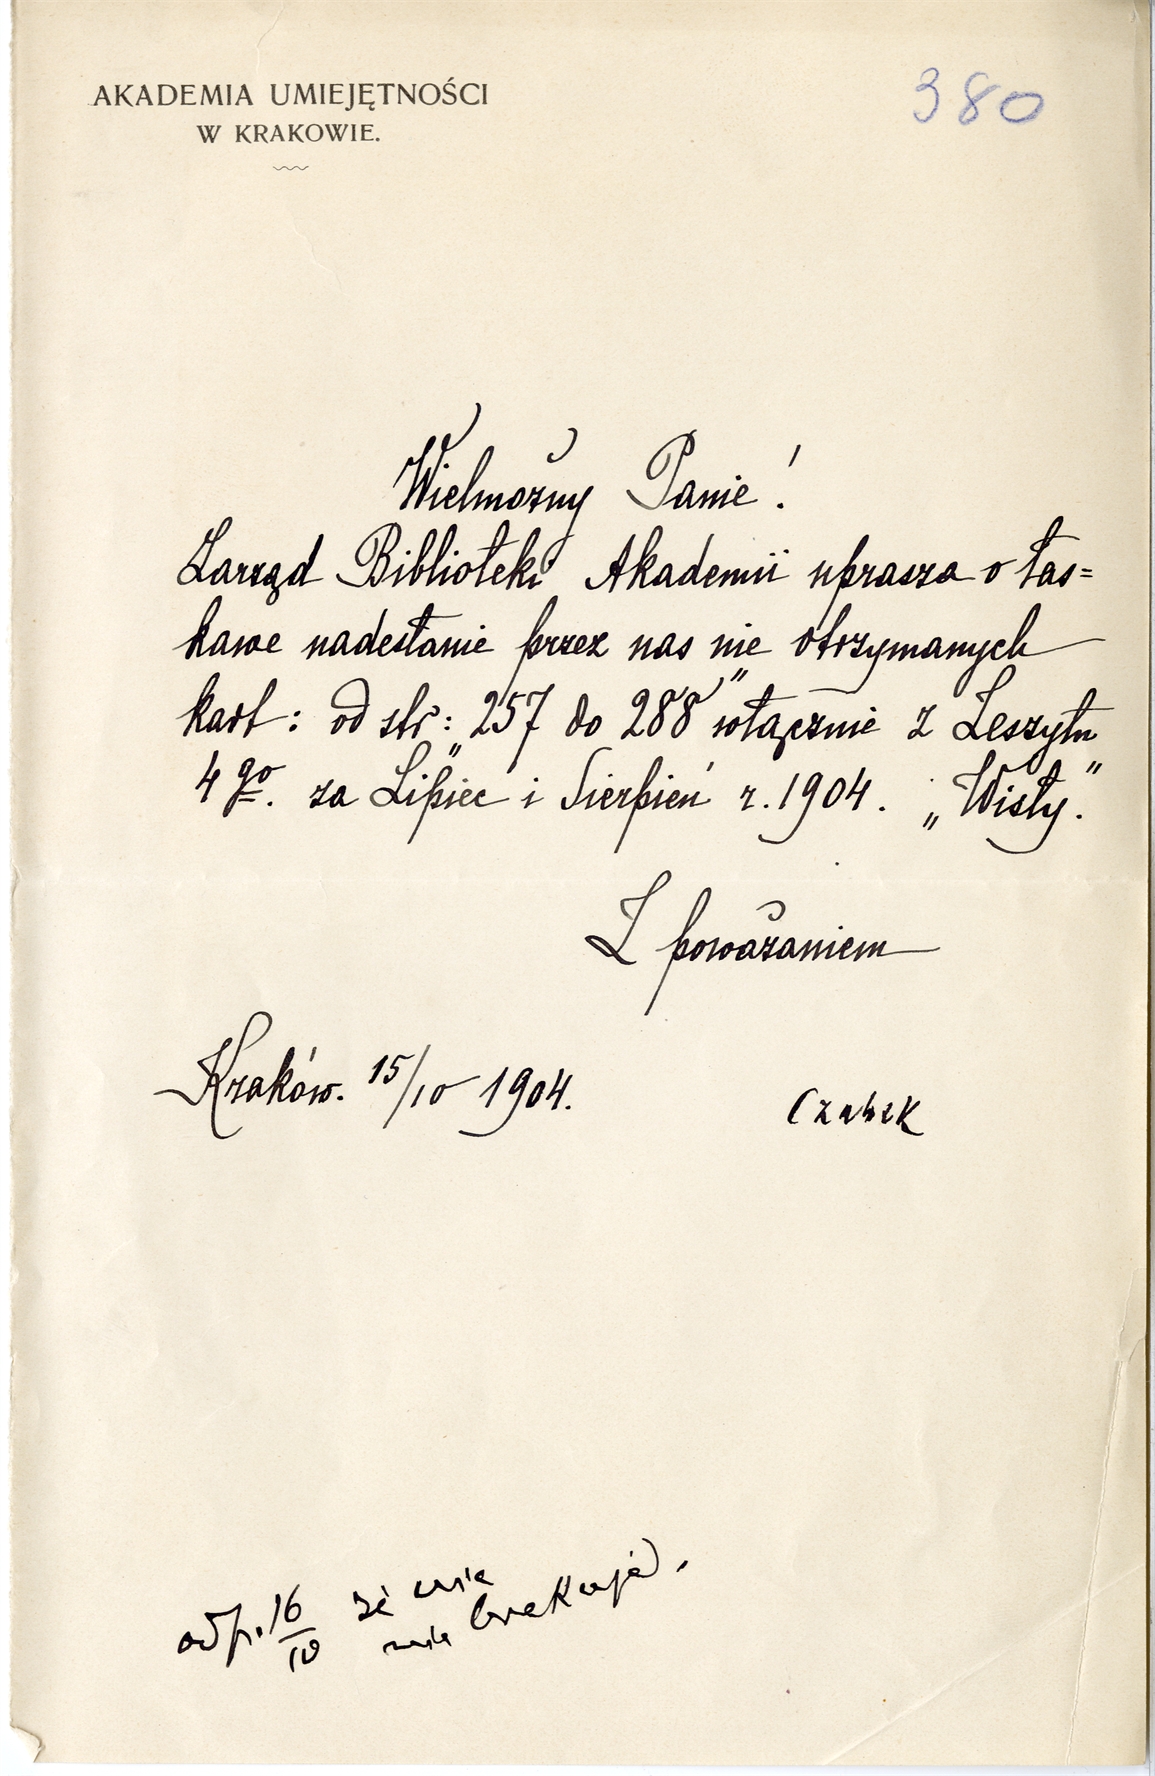 AKADEMIA UMIEJĘTNOŚCI
W KRAKOWIE.
380
Wielmożny Panie!
Zarząd Biblioteki Akademii uprasza o łas=
kawe nadesłanie przez nas nie otrzymanych
kart: od str: "257 do 288" włącznie z Zeszytu
4go. za Lipiec i Sierpień r. 1904. „Wisły."
Z poważaniem
Kraków. 15/10 1904.
Czubek
odp. 16/10 że
nie brakuje.